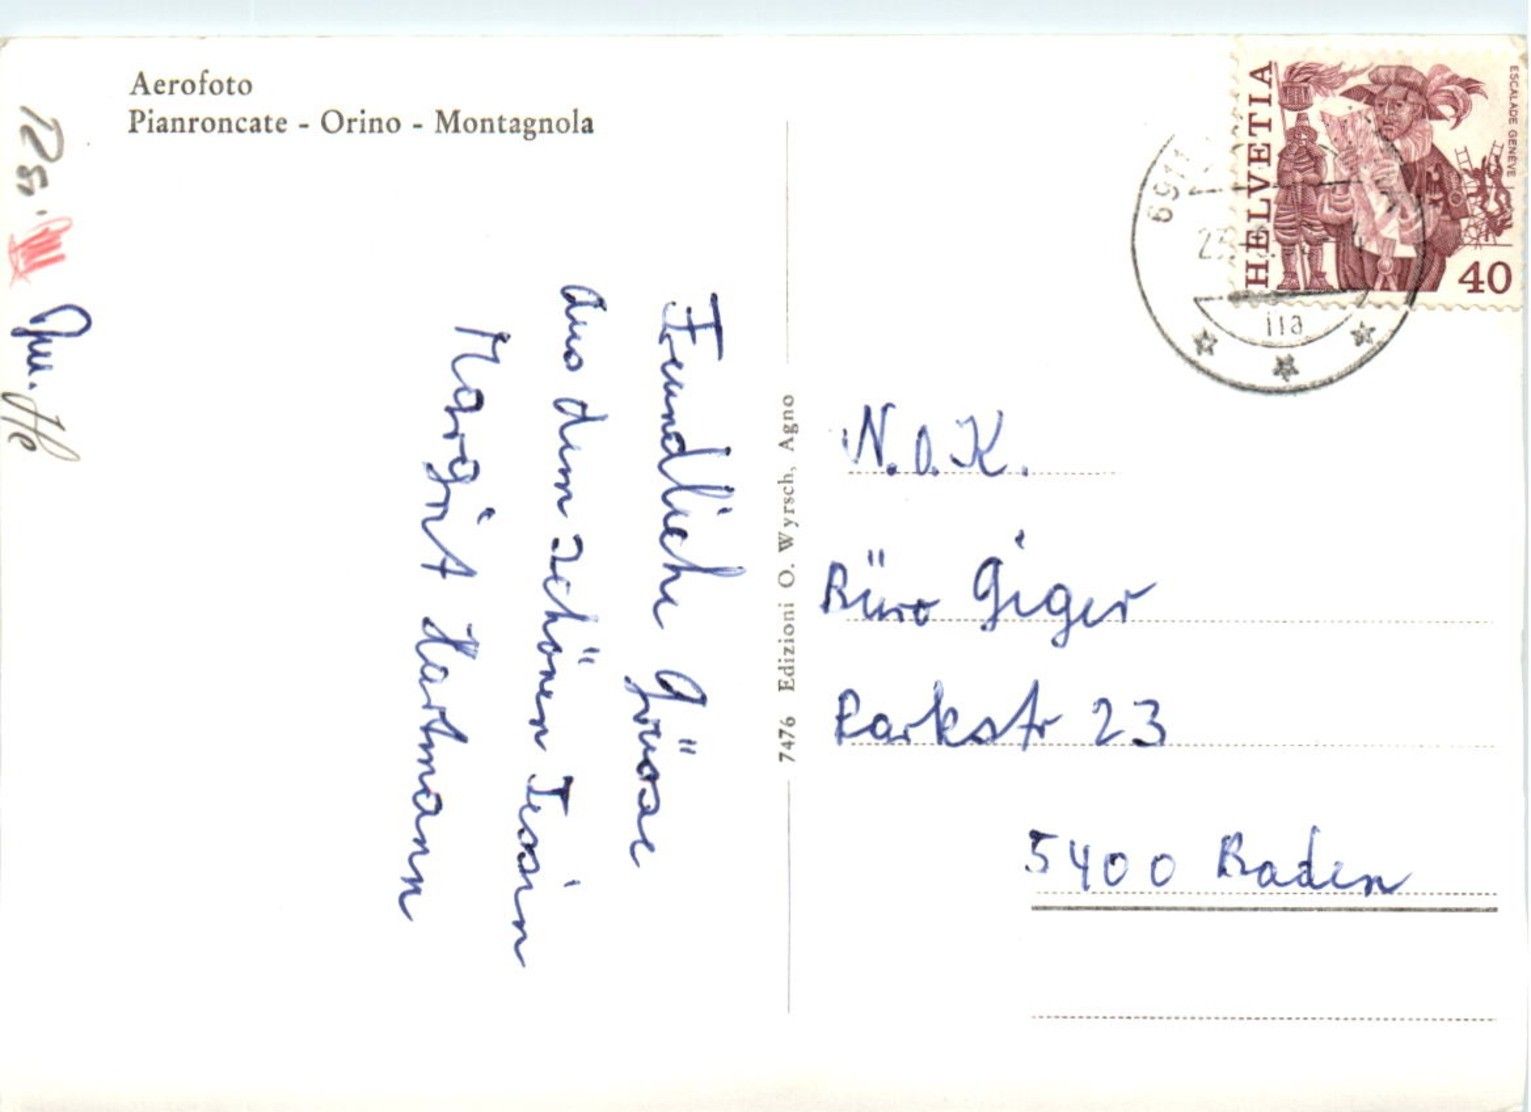 Aerofoto
Pianroncate - Orino - Montagnola
Freundliche Grüsse
aus dem schönen Tessin
Margrit Hartmann
7476 Edizioni O. Wyrsch, Agno
HELVETIA
ESCALADE GENÈVE
40
6911
N.O.K.
Büro Giger
Parkstr 23
5400 Baden